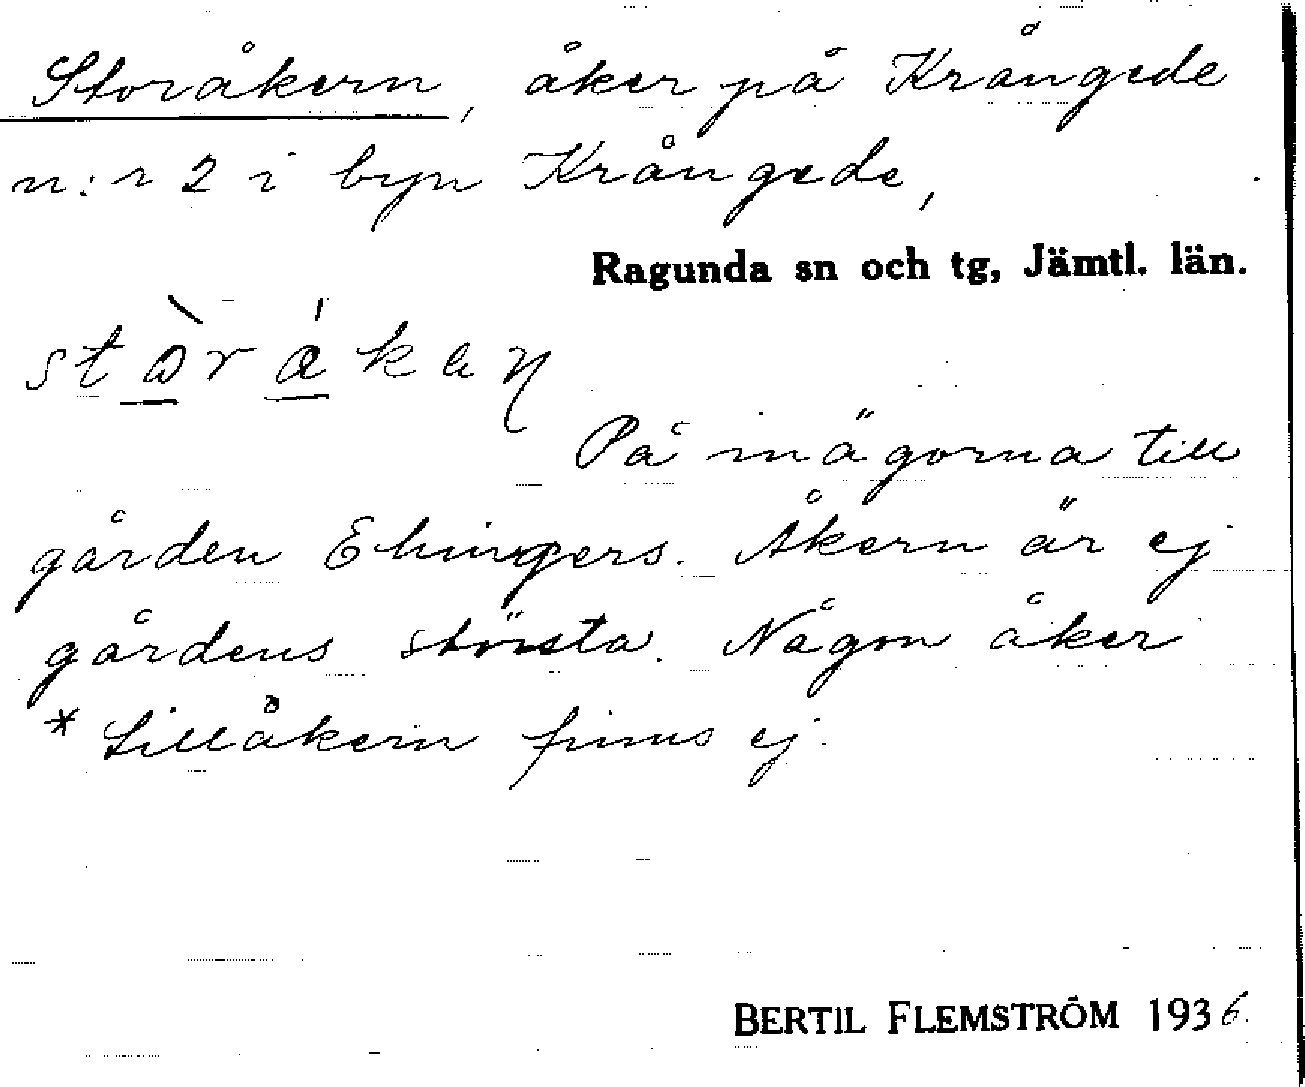 Storåkern, åker på Krångede
n:r 2 i byn Krångede,
Ragunda sn och tg, Jämtl. län.
På mägorna till
gården Ehingers. Åkern är ej
gårdens största. Någon åker
* Lillåkern finns ej.
BERTIL FLEMSTRÖM 1936.